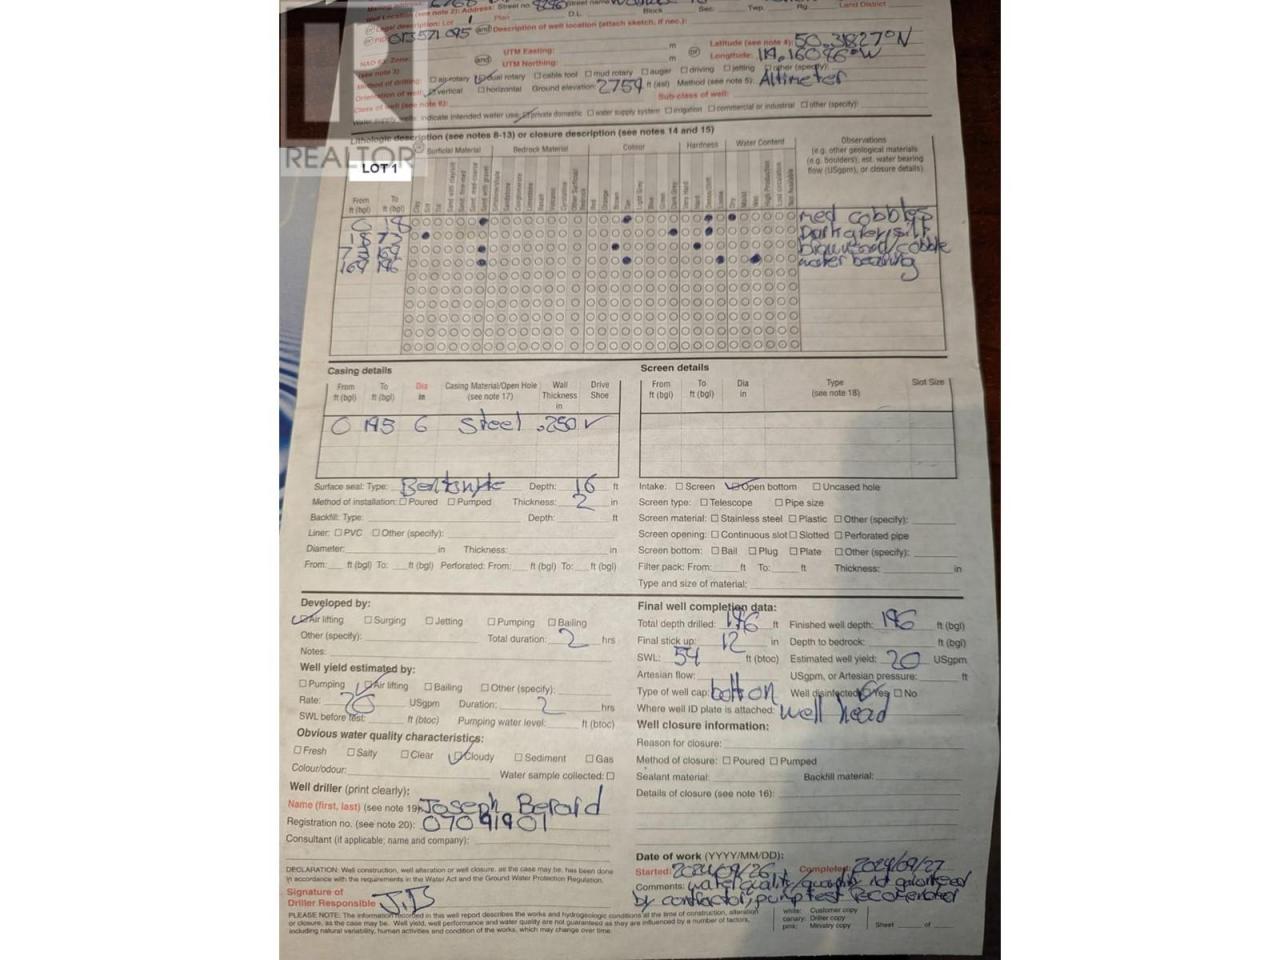 Well Location (see note 2): Address: Street no. 8290 Street name
Legal description: Lot 1 Plan D.L. Block Sec. Twp. Rg. Land District
PID: 013571095 and Description of well location (attach sketch, if nec.):
NAD 83: Zone: UTM Easting: m Latitude (see note 4): 50.31827°N
(see note 3) and UTM Northing: m or Longitude: 119.16086°W
Method of drilling: air rotary dual rotary cable tool mud rotary auger driving jetting other (specify):
Orientation of well: vertical horizontal Ground elevation: 2759 ft (asl) Method (see note 5): Altimeter
Class of well (see note 6): Sub-class of well:
Water supply wells: indicate intended water use: private domestic water supply system irrigation commercial or industrial other (specify):
Lithologic description (see notes 8-13) or closure description (see notes 14 and 15)
REALTOR
LOT 1
Surficial Material Bedrock Material Colour Hardness Water Content Observations
(e.g. other geological materials
(e.g. boulders), est. water bearing
flow (USgpm), or closure details)
From To
ft (bgl) ft (bgl)
0 18 med cobbles
18 72 Dark grey silt
brown sand/cobble
164 196 water bearing
Casing details Screen details
From To Dia Casing Material/Open Hole Wall Drive From To Dia Type Slot Size
ft (bgl) ft (bgl) in (see note 17) Thickness Shoe ft (bgl) ft (bgl) in (see note 18)
in
0 195 6 Steel .250 ✓
Surface seal: Type: Bentonite Depth: 16 ft Intake: Screen Open bottom Uncased hole
Method of installation: Poured Pumped Thickness: 2 in Screen type: Telescope Pipe size
Backfill: Type: Depth: ft Screen material: Stainless steel Plastic Other (specify):
Liner: PVC Other (specify): Screen opening: Continuous slot Slotted Perforated pipe
Diameter: in Thickness: in Screen bottom: Bail Plug Plate Other (specify):
From: ft (bgl) To: ft (bgl) Perforated: From: ft (bgl) To: ft (bgl) Filter pack: From: ft To: ft Thickness: in
Type and size of material:
Developed by: Final well completion data:
Air lifting Surging Jetting Pumping Bailing Total depth drilled: 196 ft Finished well depth: 196 ft (bgl)
Other (specify): Total duration: 2 hrs Final stick up: 12 in Depth to bedrock: ft (bgl)
Notes: SWL: 54 ft (btoc) Estimated well yield: 20 USgpm
Well yield estimated by: Artesian flow: USgpm, or Artesian pressure: ft
Pumping Air lifting Bailing Other (specify): Type of well cap: botton Well disinfected: Yes No
Rate: 20 USgpm Duration: 2 hrs Where well ID plate is attached: well head
SWL before test: ft (btoc) Pumping water level: ft (btoc) Well closure information:
Obvious water quality characteristics: Reason for closure:
Fresh Salty Clear Cloudy Sediment Gas Method of closure: Poured Pumped
Colour/odour: Water sample collected: Sealant material: Backfill material:
Well driller (print clearly): Details of closure (see note 16):
Name (first, last) (see note 19): Joseph Berard
Registration no. (see note 20): 07091901
Consultant (if applicable; name and company):
Date of work (YYYY/MM/DD):
Started: 2024/09/26 Completed: 2024/09/27
DECLARATION: Well construction, well alteration or well closure, as the case may be, has been done
in accordance with the requirements in the Water Act and the Ground Water Protection Regulation.
Comments: water quality/quantity not guaranteed
by contractor, pump test recomended
Signature of
Driller Responsible J.B
PLEASE NOTE: The information recorded in this well report describes the works and hydrogeologic conditions at the time of construction, alteration
or closure, as the case may be. Well yield, well performance and water quality are not guaranteed as they are influenced by a number of factors,
including natural variability, human activities and condition of the works, which may change over time.
white: Customer copy
canary: Driller copy
pink: Ministry copy
Sheet of